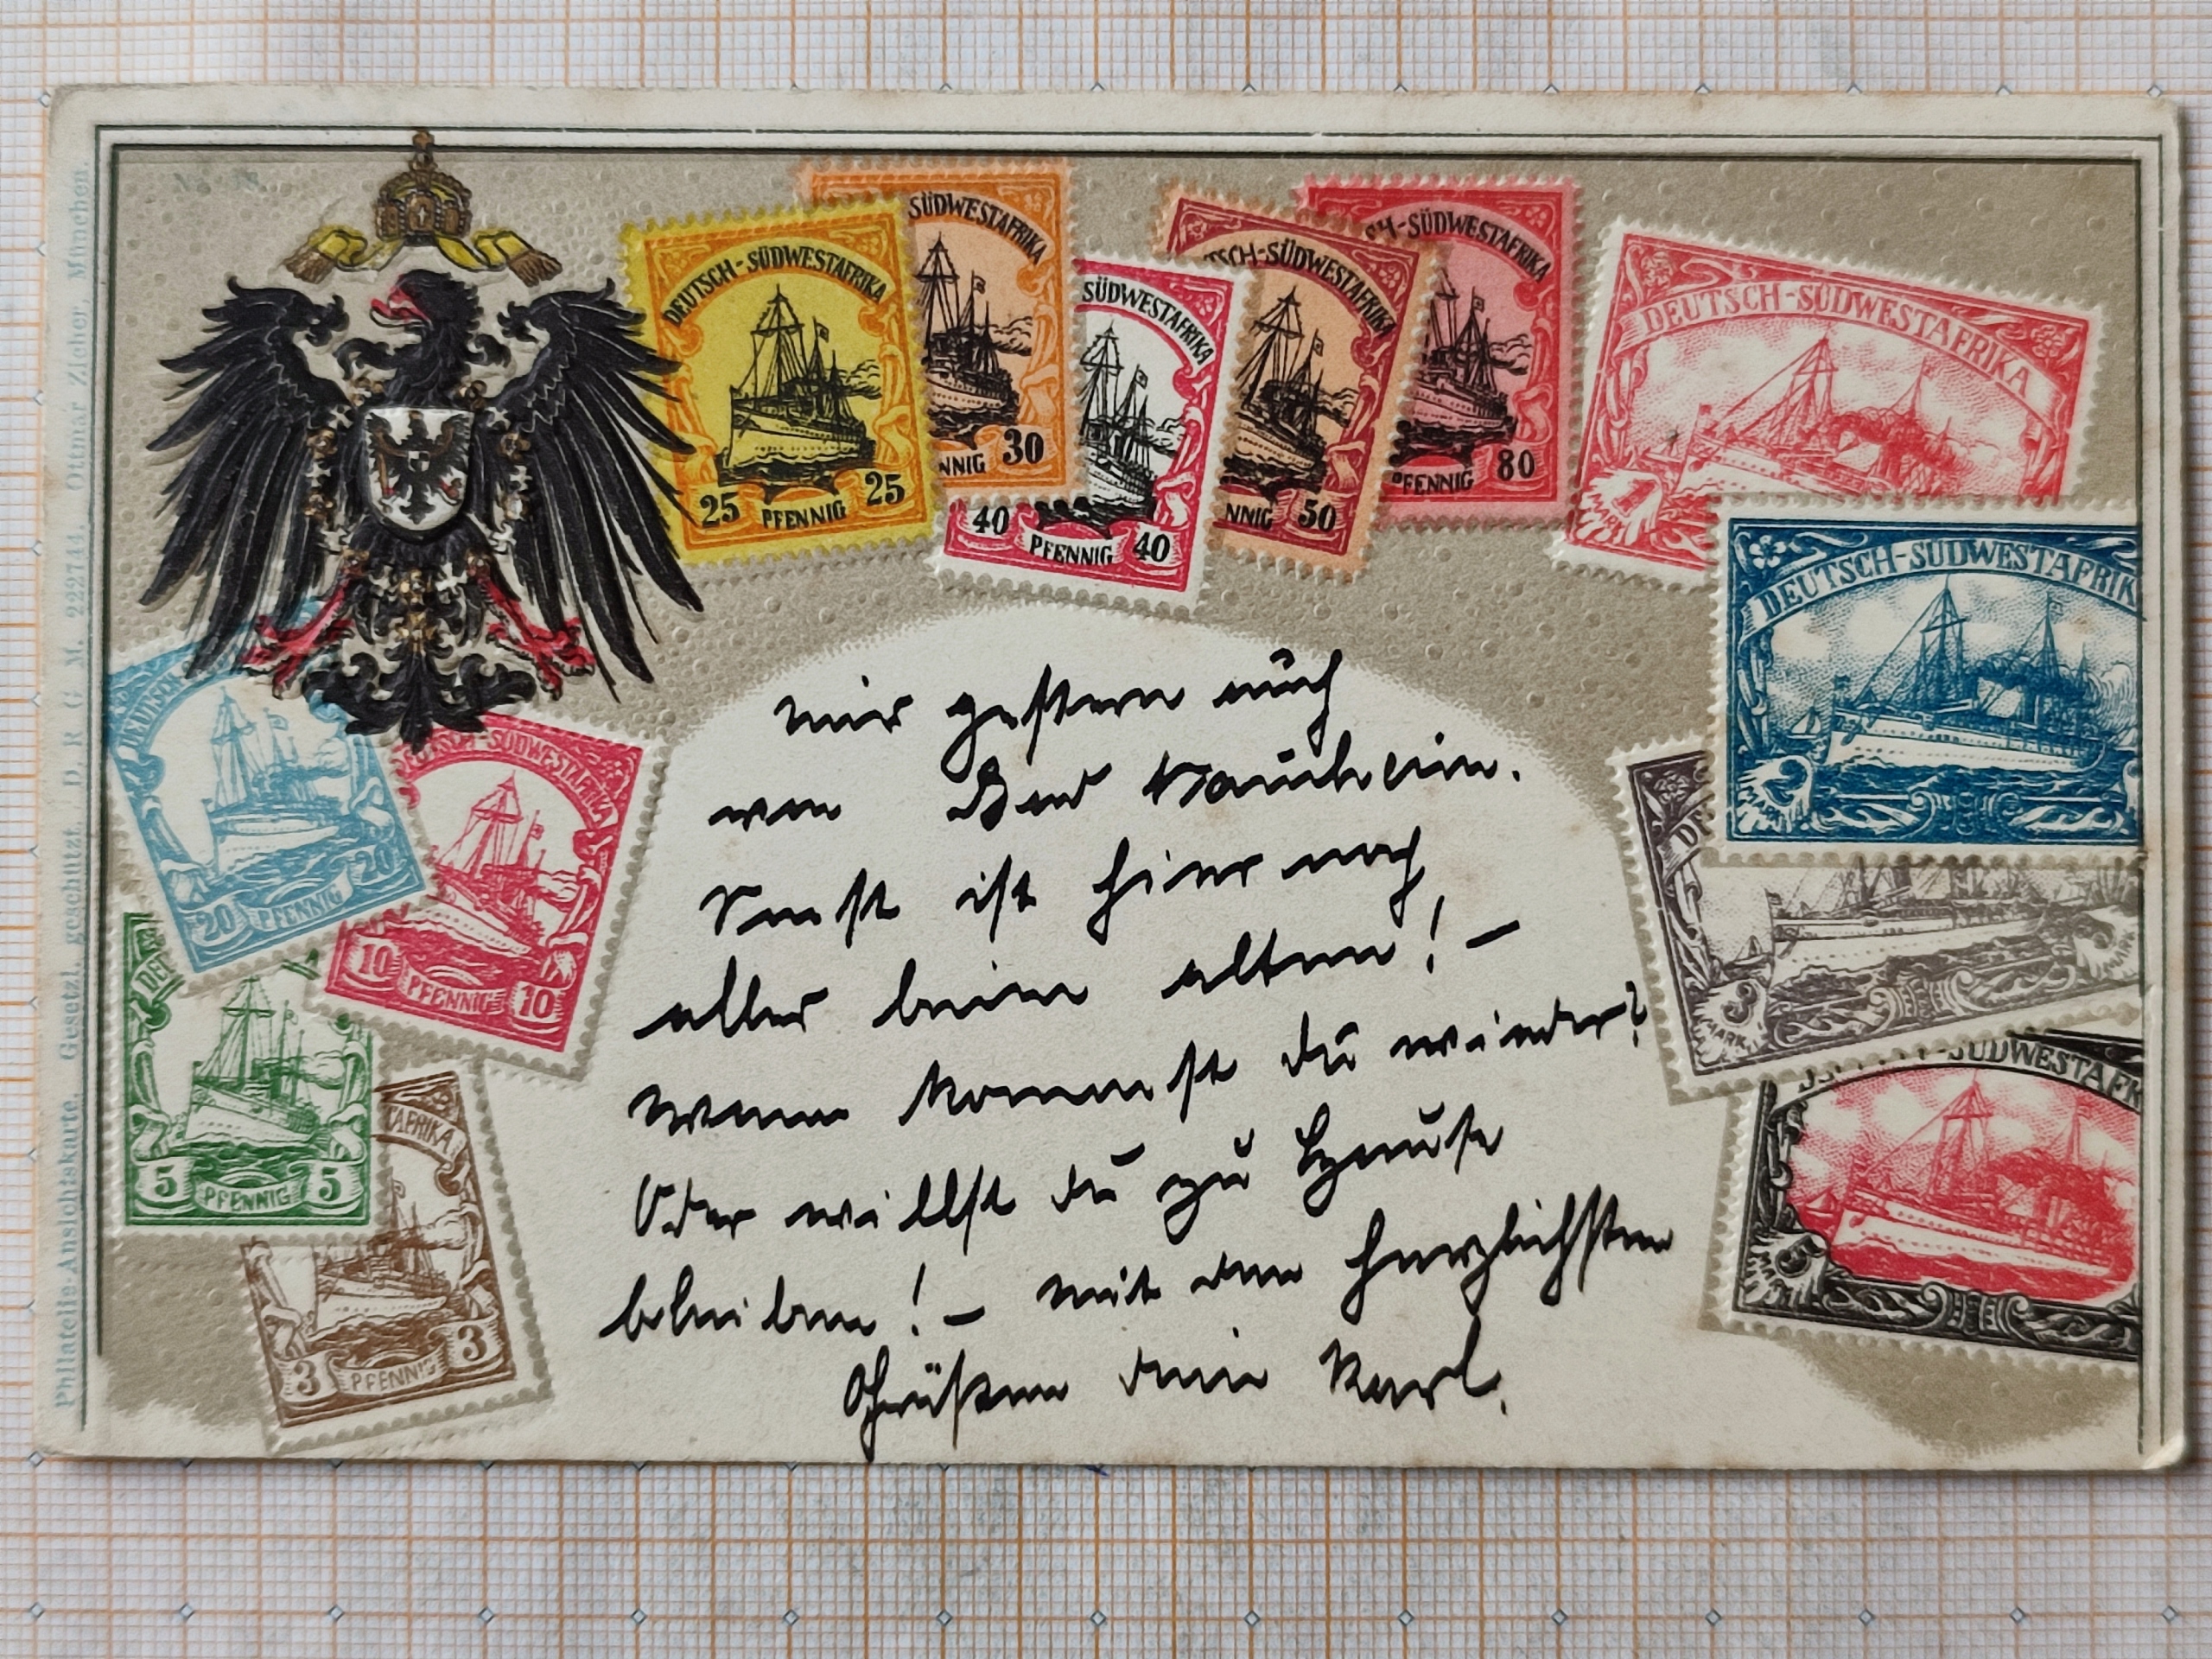 Philatelie-Ansichtskarte. Gesetzl. geschützt. D. R. G. M. 222744. Ottmar Zieher, München.
DEUTSCH-SÜDWESTAFRIKA
25 PFENNIG 25
SÜDWESTAFRIKA
NNIG 30
SÜDWESTAFRIKA
40 PFENNIG 40
TSCH-SÜDWESTAFRIKA
NNIG 50
CH-SÜDWESTAFRIKA
PFENNIG 80
DEUTSCH-SÜDWESTAFRIKA
1
DEUTSCH-SÜDWESTAFRIK
DE
3 MARK
MARK
SÜDWESTAFR
DEUTSC
20 PFENNIG 20
TSCH-SÜDWESTAFRIKA
10 PFENNIG 10
DE
5 PFENNIG 5
TAFRIKA
3 PFENNIG 3
wir gestern auch
von Bad Nauheim.
Sonst ist hier noch
alles beim alten! –
Wann kommst du wieder?
Oder willst du zu Hause
bleiben! – Mit den herzlichsten
Grüßen dein Karl.